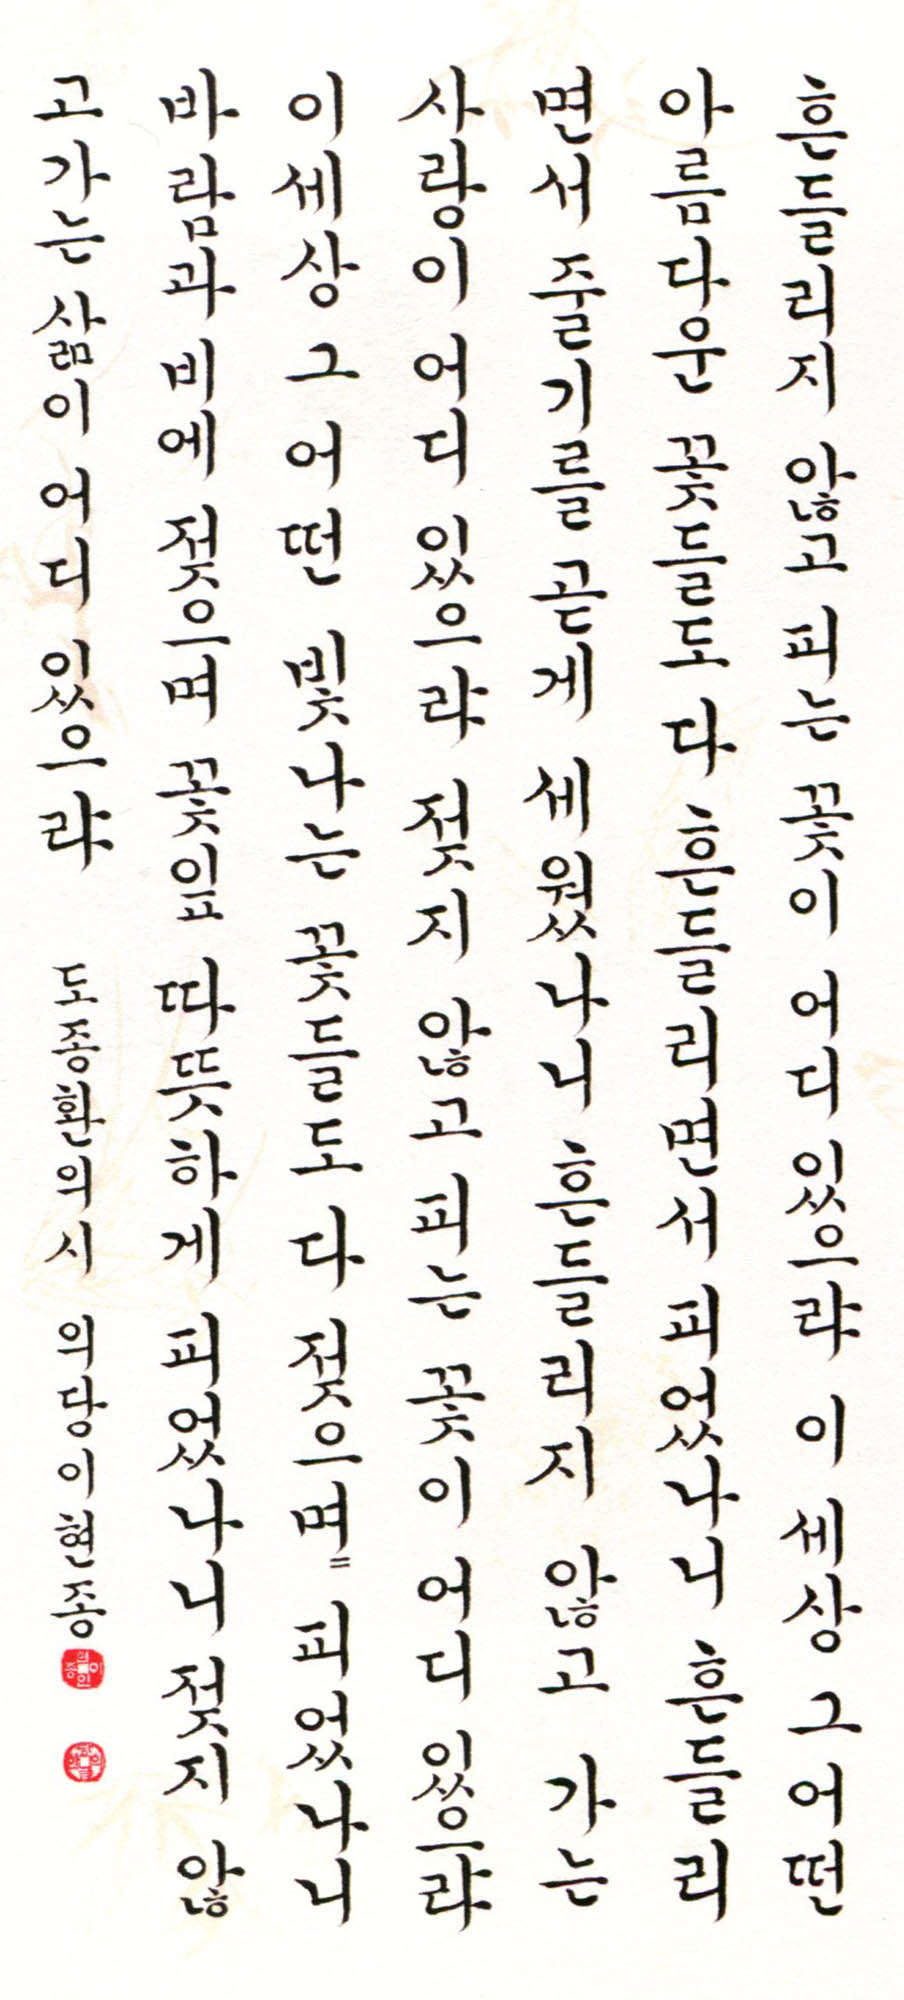 흔들리지 않고 피는 꽃이 어디 있으랴 이 세상 그 어떤
아름다운 꽃들도 다 흔들리면서 피었나니 흔들리
면서 줄기를 곧게 세웠나니 흔들리지 않고 가는
사랑이 어디 있으랴 젖지 않고 피는 꽃이 어디 있으랴
이 세상 그 어떤 빛나는 꽃들도 다 젖으며〃 피었나니
바람과 비에 젖으며 꽃잎 따뜻하게 피었나니 젖지 않
고 가는 삶이 어디 있으랴 도종환의 시 의당 이현종